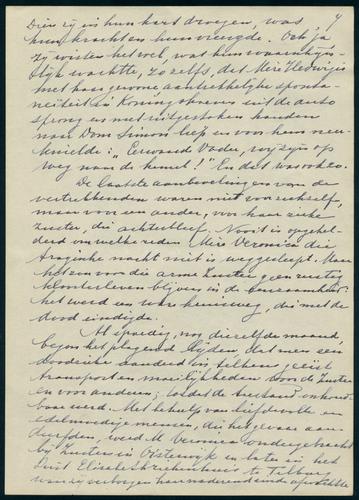 Dien zij in hun hart droegen, was
hun kracht en hun vreugde. Och ja
zij wisten het wel, wat hun waarschijn-
lijk wachtte, zo zelfs, dat Mère Hedwigis
met haar gewone aantrekkelijke sponta-
neïteit in Koningshoeven uit de auto
sprong en met uitgestoken handen
naar Dom Simon liep en voor hem neer-
knielde: "Eerwaarde Vader, wij zijn op
weg naar de hemel!" En dat was ook zo.
De laatste aanbevelingen van de
vertrekkenden waren niet voor zichzelf,
maar voor een ander, voor haar zieke
zuster, die achterbleef. Nooit is opgehel-
derd om welke reden Mère Veronica die
tragische nacht niet is weggesleept. Maar
het zou voor die arme Zuster geen rustig
kloosterleven blijven in de eenzaamheid:
het werd een ware kruisweg, die met de
dood eindigde.
Al spoedig, nog diezelfde maand,
begon het plagend lijden, dat men een
doodzieke aandeed in telkens geëist
transporten, moeilijkheden voor de Zuster
en voor anderen; totdat de toestand onhoud-
baar werd. Met behulp van liefdevolle en
edelmoedige mensen, die het gevaar aan-
durfden, werd M. Veronica ondergebracht
bij Zusters in Oisterwijk en later in het
Sint Elisabethziekenhuis te Tilburg
waar zij verborgen haar naderend einde afwachtte